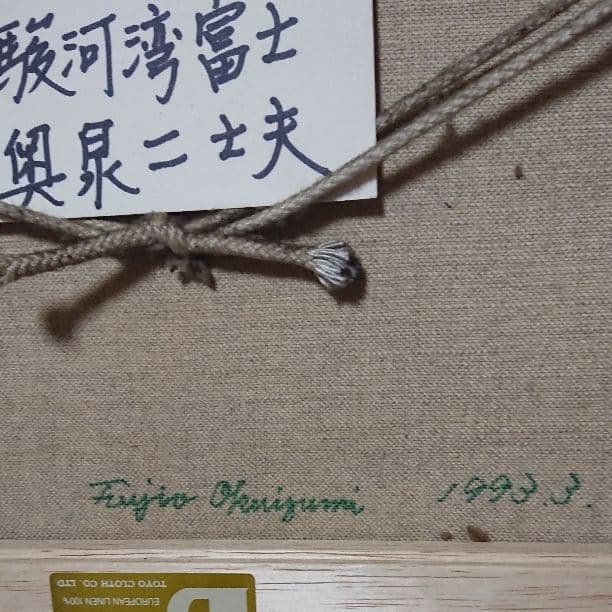 駿河湾富士
奥泉二士夫
Fujio Okuizumi 1993.3.
TOYO CLOTH CO. LTD
EUROPEAN LINEN 100%